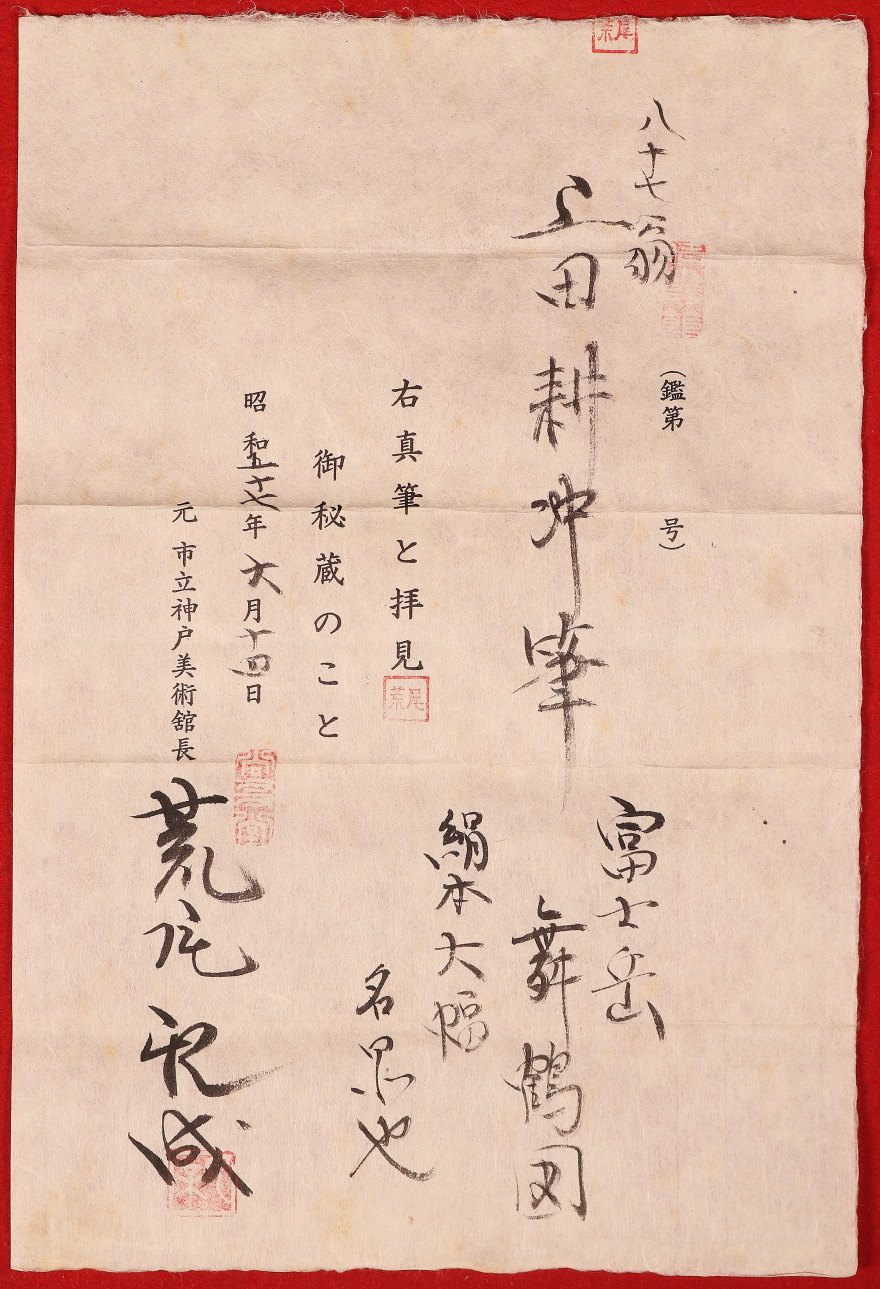 八十七翁
上田耕冲筆
富士岳
舞鶴図
絹本大幅
名墨也
(鑑第 号)
右真筆と拝見
御秘蔵のこと
昭和五十七年六月十四日
元 市立神戸美術舘長
荒尾親成
荒尾